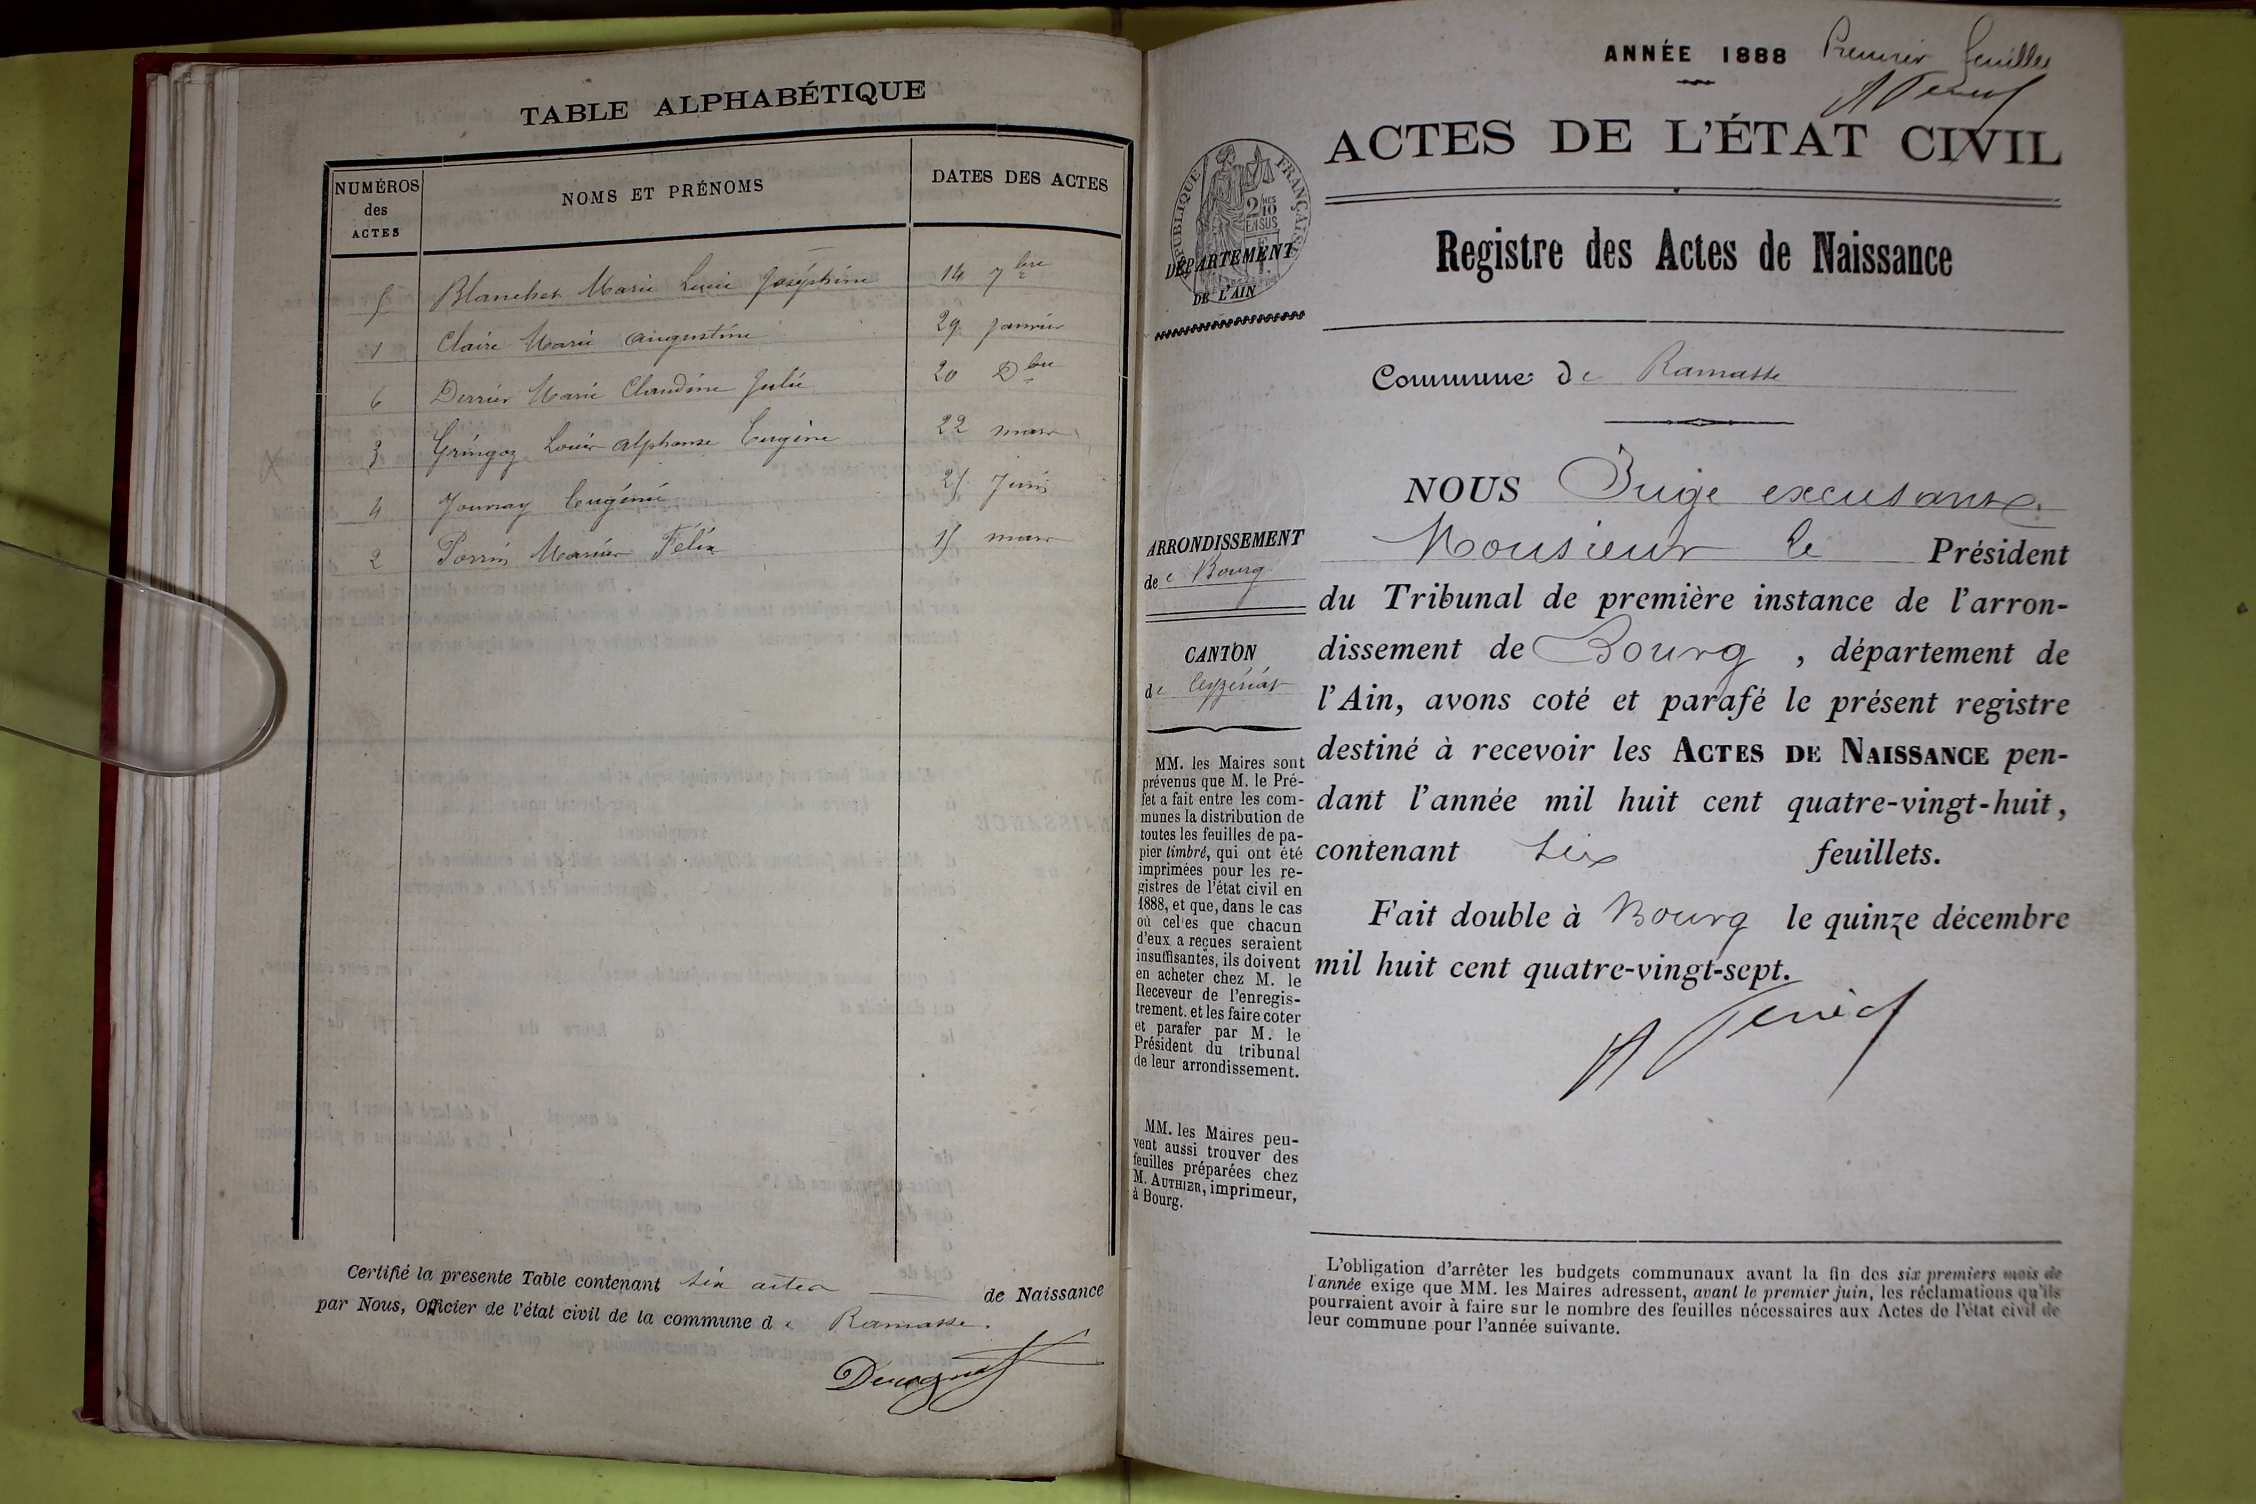 TABLE ALPHABÉTIQUE
NUMÉROS
des
ACTES
NOMS ET PRÉNOMS
DATES DES ACTES
5 Blanchet Marie Lucie Joséphine 14 7bre
1 Claire Marie Augustine 29 janvier
6 Derrier Marie Claudine Julie 20 Dbre
3 Gringoz Louis Alphonse Eugène 22 mars
4 Journay Eugénie 25 Juin
2 Perrin Marius Félix 15 mars
Certifié la presente Table contenant six actes de Naissance
par Nous, Officier de l'état civil de la commune de Ramasse.
ANNÉE 1888 Premier feuillet
ACTES DE L'ÉTAT CIVIL
RÉPUBLIQUE FRANÇAISE
2/10MES
EN SUS
DÉPARTEMENT
DE L'AIN
Registre des Actes de Naissance
Commune de Ramasse
ARRONDISSEMENT
de Bourg
CANTON
de Ceyzériat
MM. les Maires sont
prévenus que M. le Pré-
fet a fait entre les com-
munes la distribution de
toutes les feuilles de pa-
pier timbré, qui ont été
imprimées pour les re-
gistres de l'état civil en
1888, et que, dans le cas
où cel'es que chacun
d'eux a reçues seraient
insuffisantes, ils doivent
en acheter chez M. le
Receveur de l'enregis-
trement. et les faire coter
et parafer par M. le
Président du tribunal
de leur arrondissement.
MM. les Maires peu-
vent aussi trouver des
feuilles préparées chez
M. AUTHIER, imprimeur,
à Bourg.
NOUS Juge excusant
Monsieur le Président
du Tribunal de première instance de l'arron-
dissement de Bourg, département de
l'Ain, avons coté et parafé le présent registre
destiné à recevoir les ACTES DE NAISSANCE pen-
dant l'année mil huit cent quatre-vingt-huit,
contenant six feuillets.
Fait double à Bourg le quinze décembre
mil huit cent quatre-vingt-sept.
L'obligation d'arrêter les budgets communaux avant la fin des six premiers mois de
l'année exige que MM. les Maires adressent, avant le premier juin, les réclamations qu'ils
pourraient avoir à faire sur le nombre des feuilles nécessaires aux Actes de l'état civil de
leur commune pour l'année suivante.